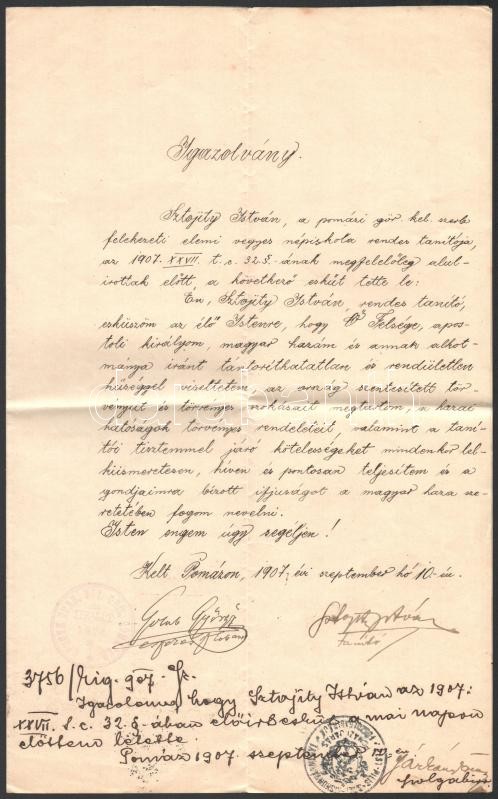 Igazolvány.
Sztojity István, a pomázi gör. kel. szerb
felekezeti elemi vegyes népiskola rendes tanitója,
az 1907. XXVII. t. c. 32 §.-ának megfelelőleg alul-
irottak előtt, a következő esküt tette le:
Én, Sztojity István, rendes tanitó,
esküszöm az élő Istenre, hogy Ő Felsége, apos-
toli királyom, magyar hazám és annak alkot-
mánya iránt tántorithatatlan és rendületlen
hűséggel viseltetem, az ország szentesitett tör-
vényeit és törvényes szokásait megtartom, a hazai
hatóságok törvényes rendeleteit, valamint a tani-
tói tisztemmel járó kötelességeket mindenkor lel-
kiismeretesen, hiven és pontosan teljesitem és a
gondjaimra bizott ifjuságot a magyar haza sze-
retetében fogom nevelni.
Isten engem úgy segéljen!
Kelt Pomázon, 1907. évi szeptember hó 10.-én.
György
István
tanitó
3756/kig. 907. Sz.
Igazolom, hogy Sztojity István az 1907:
XXVII. t. c. 32 §-ában előirt esküt a mai napon
előttem letette.
Pomáz 1907. szeptember